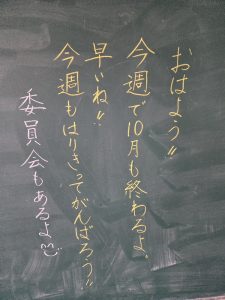 おはよう!!
今週で10月も終わるよ。
早いね!!
今週もはりきってがんばろう!!
委員会もあるよ